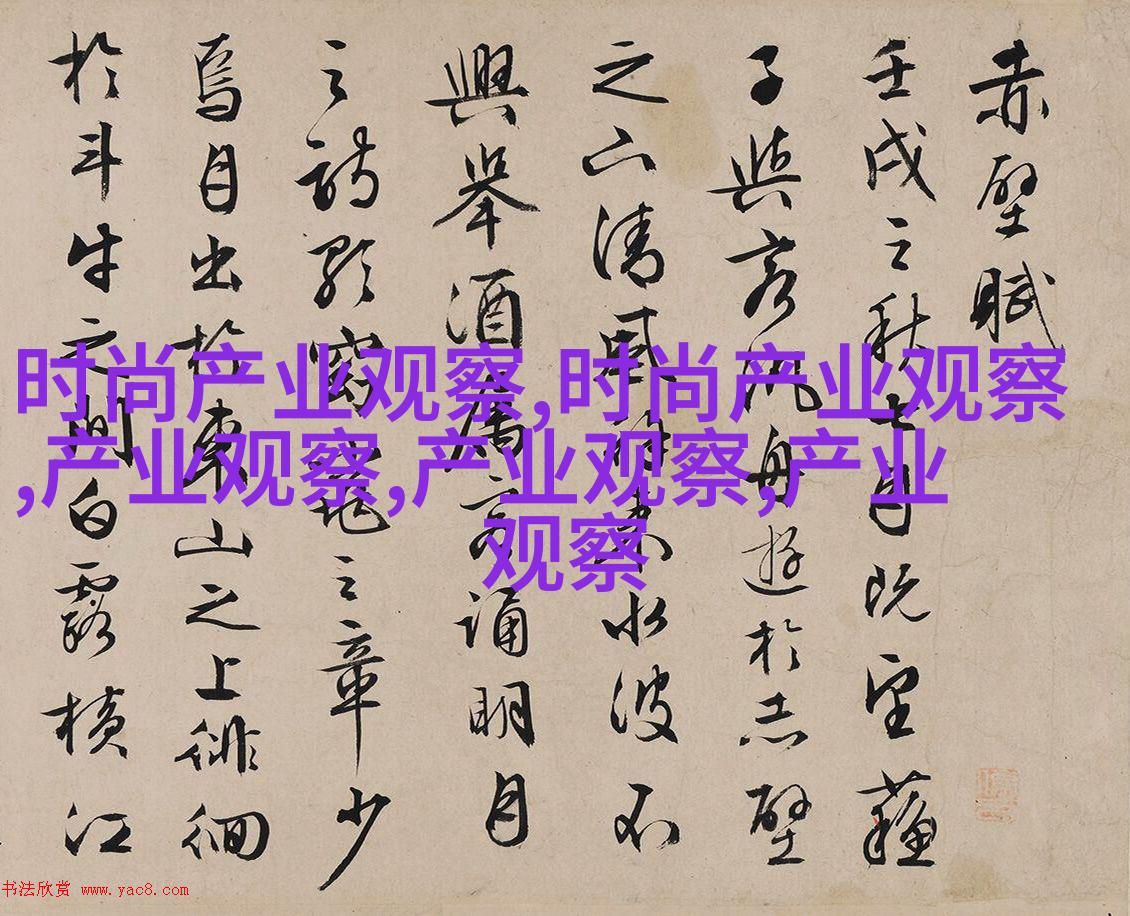 赤壁賦
壬戌之秋七月既望蘇
子與客汎舟遊於赤壁
之下清風徐來水波不
興舉酒屬客誦明月
之詩歌窈窕之章少
焉月出於東山之上徘徊
於斗牛之間白露橫江
时尚产业观察,时尚产业观察
,产业观察,产业观察,产业
观察
书法欣赏 www.yac8.com